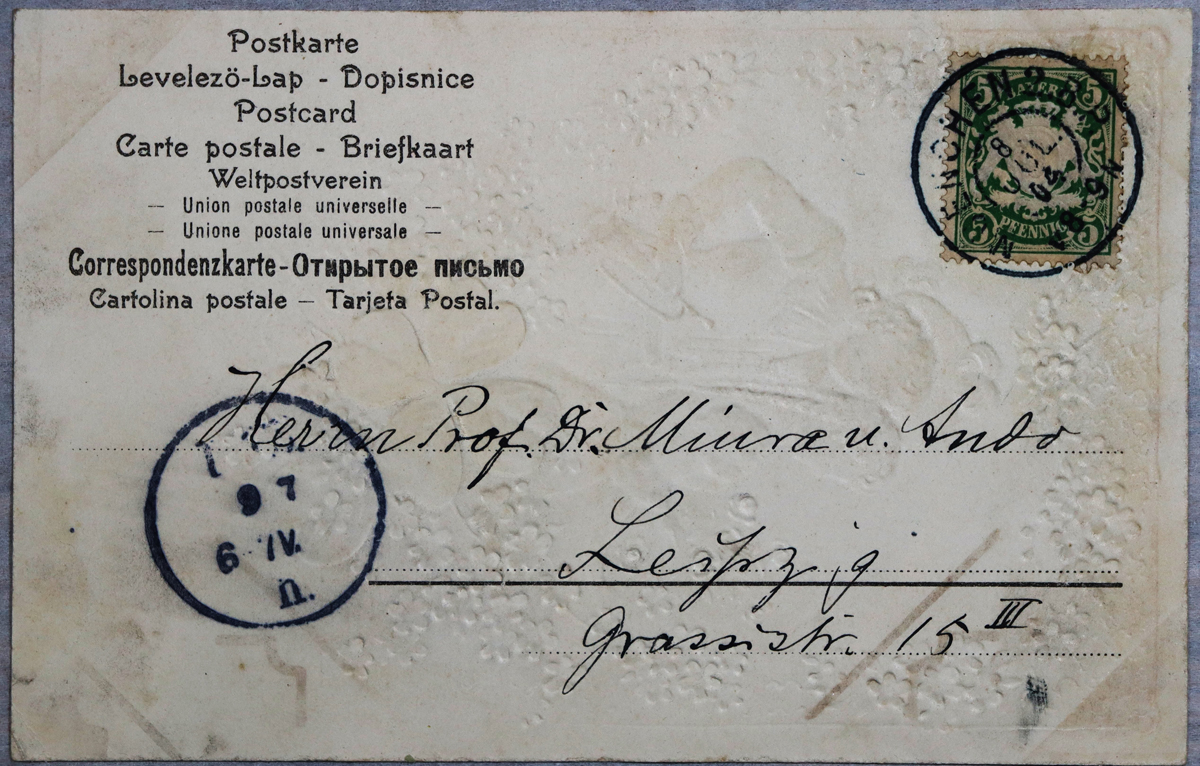 Postkarte
Levelezö-Lap - Dopisnice
Postcard
Carte postale - Briefkaart
Weltpostverein
— Union postale universelle —
— Unione postale universale —
Correspondenzkarte-Открытое письмо
Cartolina postale — Tarjeta Postal.
5 5
8
JUL.
PFENNIG
5 5
Herrn Prof. Dr. Miura u. Ando
9 7
6 IV.
n.
Leipzig
Grassistr. 15 III